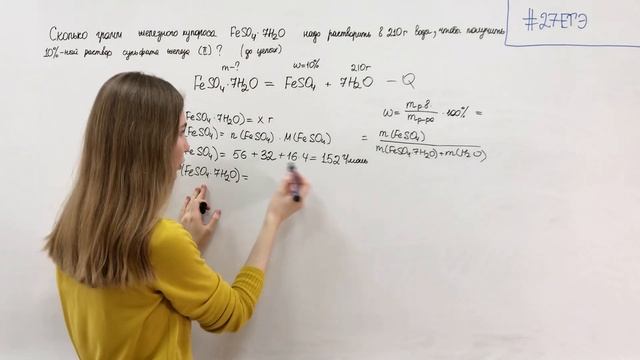 #27ЕГЭ
Сколько грамм железного купороса FeSO₄·7H₂O надо растворить в 210г воды, чтобы получить
10%-ный раствор сульфата железа (II)? (до целых)
m-? ω=10% 210г
FeSO₄·7H₂O = FeSO₄ + 7H₂O - Q
FeSO₄·7H₂O) = x г
(FeSO₄) = n(FeSO₄) · M(FeSO₄)
FeSO₄) = 56 + 32 + 16·4 = 152 г/моль
(FeSO₄·7H₂O) =
ω = m р.в / m р-ра · 100% =
= m(FeSO₄) / m(FeSO₄·7H₂O) + m(H₂O)